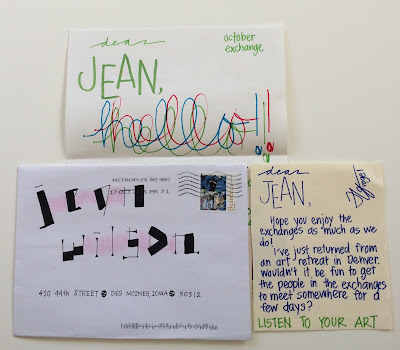 dear
JEAN,
october
exchange
hello!!
METROPLEX MI 480
jean
wilson
420 44th STREET DES MOINES, IOWA 50312
dear
JEAN,
Hope you enjoy the
exchanges as much as we
do!
I've just returned from
an art retreat in Denver.
wouldn't it be fun to get
the people in the exchanges
to meet somewhere for a
few days?
LISTEN TO YOUR ART